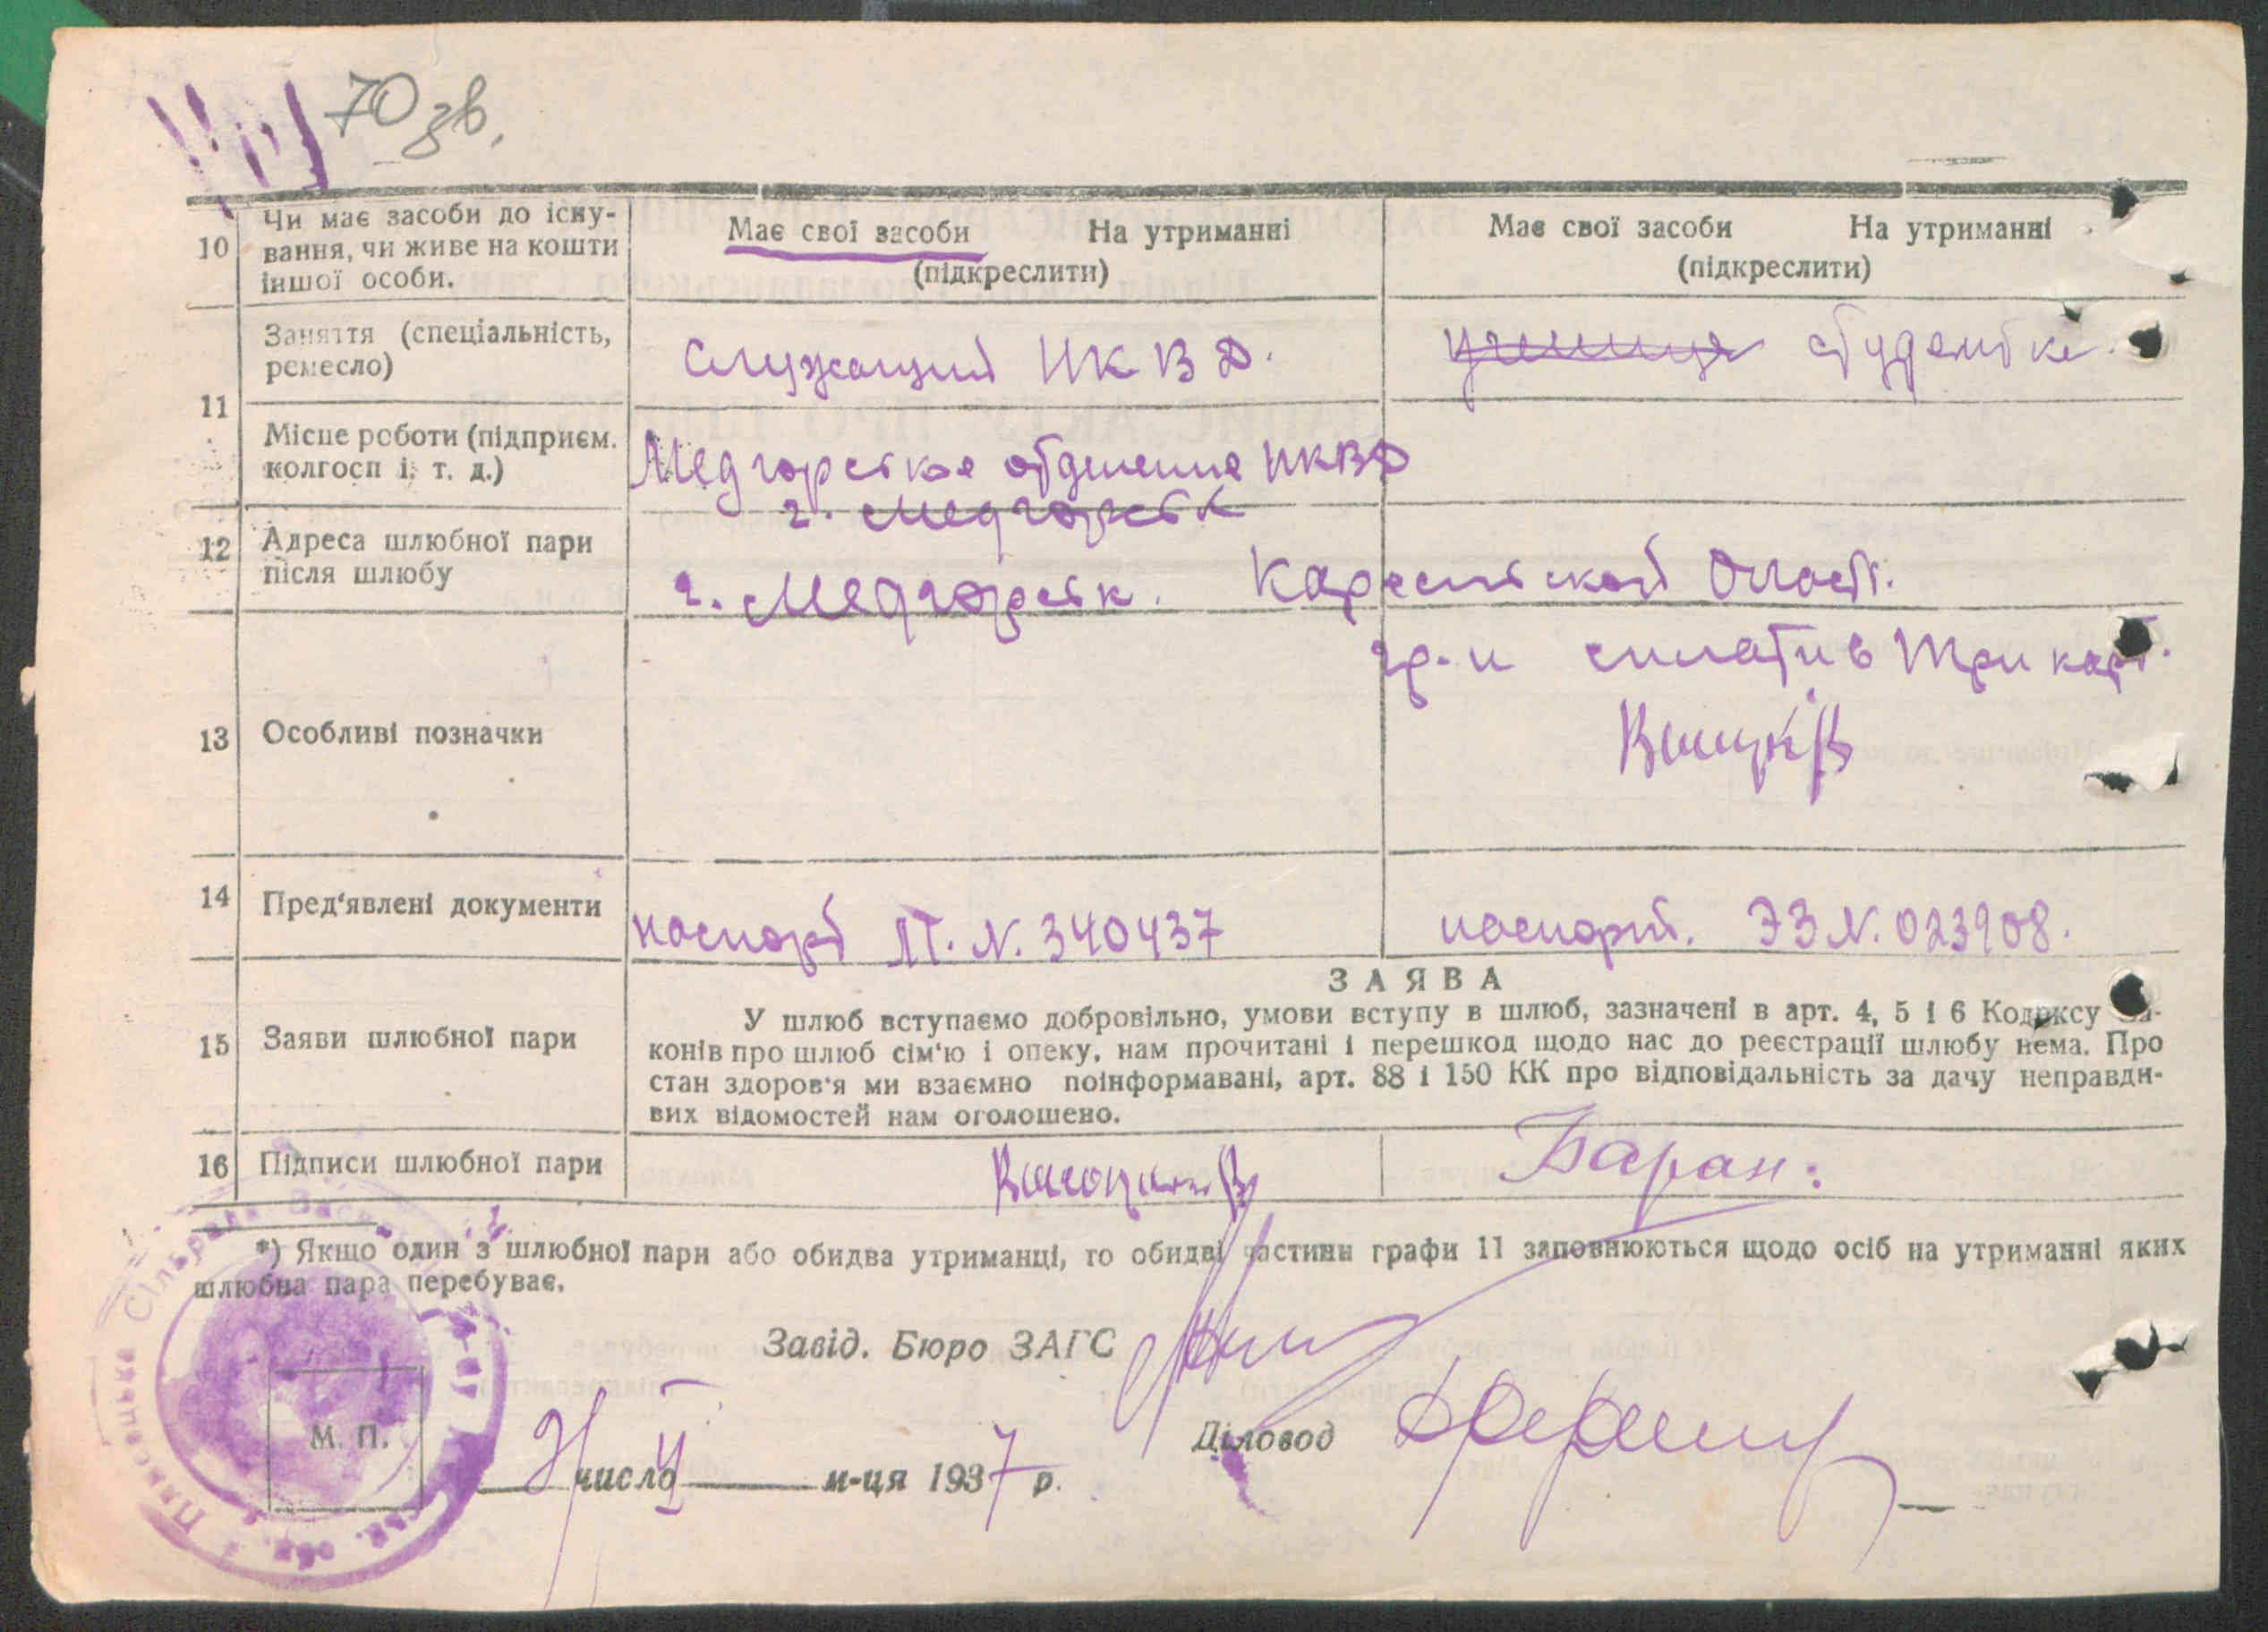 70 зв.
10 Чи має засоби до існу-
вання, чи живе на кошти
іншої особи.
Має свої засоби На утриманні
(підкреслити)
Має свої засоби На утриманні
(підкреслити)
11 Заняття (спеціальність,
ремесло)
Служащий НКВД.
ученица студентка.
Місце роботи (підприєм.
колгосп і. т. д.)
Медгорское отделение НКВД
г. Медгорск
12 Адреса шлюбної пари
після шлюбу
г. Медгорск. Карельской Област.
13 Особливі позначки
гр-н сплатив три карб.
14 Пред'явлені документи
паспорт ЛТ. N. 340437
паспорт. ЭЗ N. 023908.
15 Заяви шлюбної пари
ЗАЯВА
У шлюб вступаємо добровільно, умови вступу в шлюб, зазначені в арт. 4, 5 і 6 Кодексу за-
конів про шлюб сім'ю і опеку, нам прочитані і перешкод щодо нас до реєстрації шлюбу нема. Про
стан здоров'я ми взаємно поінформавані, арт. 88 і 150 КК про відповідальність за дачу неправди-
вих відомостей нам оголошено.
16 Підписи шлюбної пари
Баран:
*) Якщо один з шлюбної пари або обидва утриманці, то обидві частини графи 11 заповнюються щодо осіб на утриманні яких
шлюбна пара перебуває.
Завід. Бюро ЗАГС
Діловод
М. П.
число II м-ця 1937 р.
Сільрада